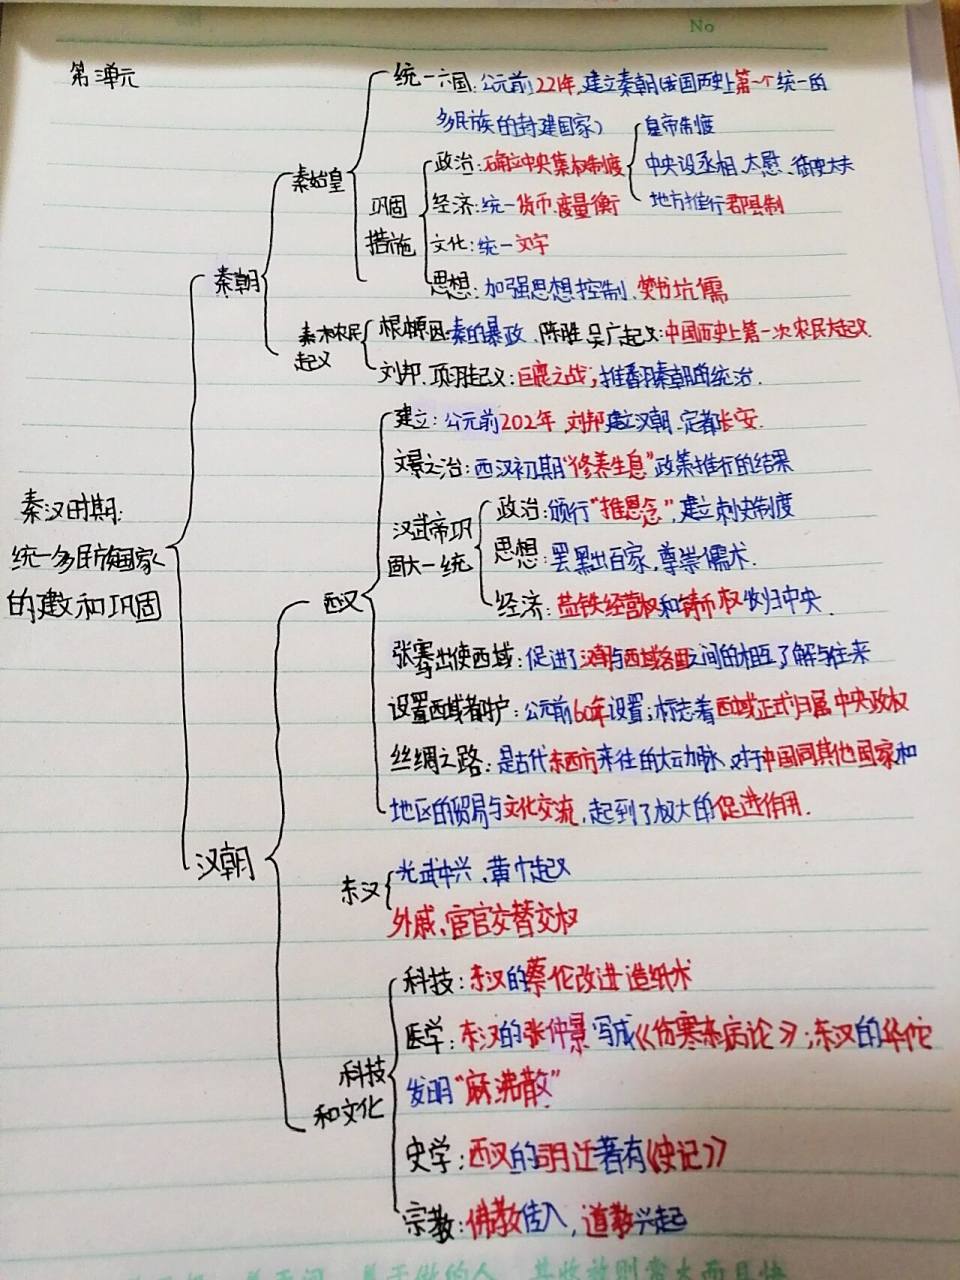 No
第三单元
统一六国:公元前221年,建立秦朝(我国历史上第一个统一的
多民族的封建国家)
皇帝制度
秦始皇
政治:确立中央集权制度
中央设丞相、太慰、御史大夫
巩固
措施
经济:统一货币、度量衡
地方推行郡县制
文化:统一文字
思想:加强思想控制、焚书坑儒
秦朝
秦末农民
起义
根本原因:秦的暴政、陈胜、吴广起义:中国历史上第一次农民大起义.
刘邦、项羽起义:巨鹿之战;推翻秦朝的统治.
建立:公元前202年,刘邦建立汉朝、定都长安.
文景之治:西汉初期“修养生息”政策推行的结果
秦汉时期:
统一多民族国家
的建立和巩固
汉武帝巩
固大一统
政治:颁行“推恩令”,建立刺史制度
思想:罢黜百家,尊崇儒术.
西汉
经济:盐铁经营权和铸币权收归中央.
张骞出使西域:促进了汉朝与西域各国之间的相互了解与往来
设置西域都护:公元前60年设置;标志着西域正式归属中央政权
丝绸之路:是古代东西方来往的大动脉、对于中国同其他国家和
地区的贸易与文化交流,起到了极大的促进作用.
汉朝
东汉
光武中兴、黄巾起义
外戚、宦官交替交权
科技:东汉的蔡伦改进造纸术
医学:东汉的张仲景写成《伤寒杂病论》;东汉的华佗
发明“麻沸散”
科技
和文化
史学:西汉的司马迁著有《史记》
宗教:佛教传入,道教兴起